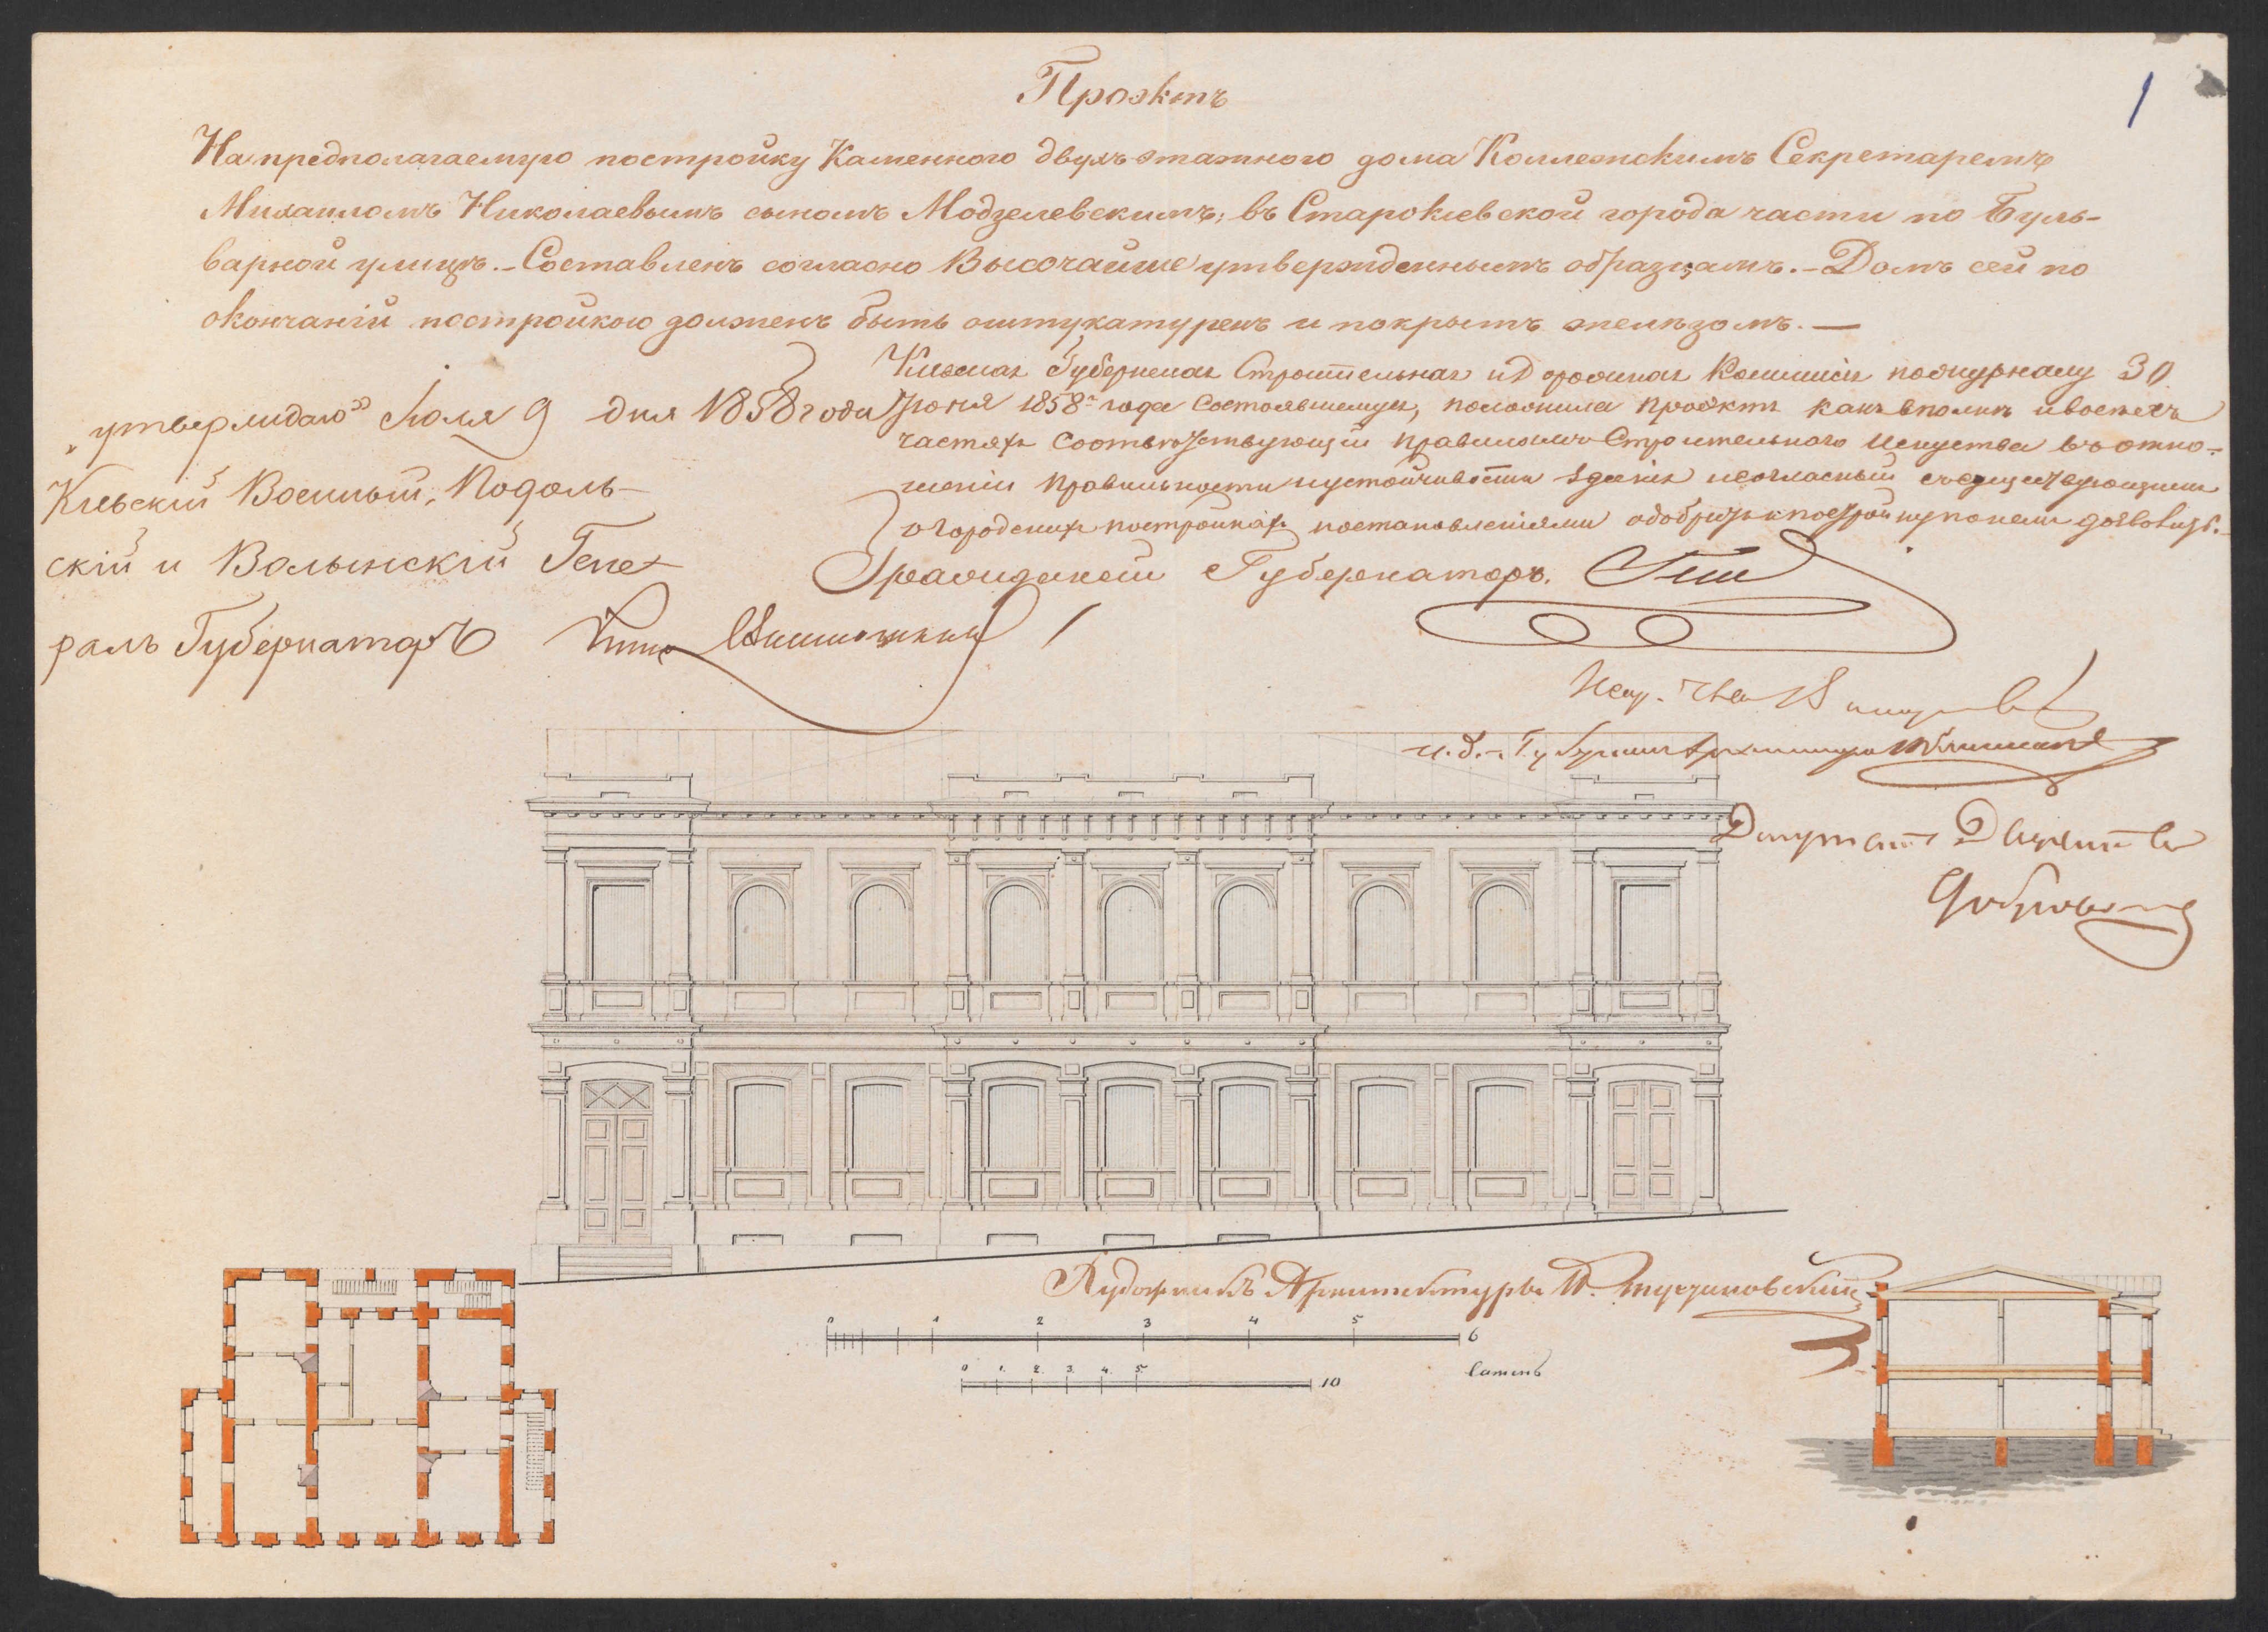 Проэктъ
1
На предполагаемую постройку Каменного двухъ этажного дома Коллежскимъ Секретаремъ
Михаиломъ Николаевымъ сыномъ Модзелевскимъ; въ Старокіевской города части по Буль-
варной улицѣ.- Составленъ согласно Высочайше утвержденнымъ образцамъ.- Домъ сей по
окончаніи постройкою долженъ быть оштукатуренъ и покрытъ желѣзомъ.-
Кіевская Губернская Строительная и Дорожная Коммисія по журналу 30
Іюня 1858 года состоявшемуся, положила проэктъ какъ вполнѣ и во всѣхъ
частяхъ соотвѣтствующій правиламъ Строительного Искуства въ отно-
шеніи правильности и устойчивости зданія и согласный съ существующими
о городскихъ постройкахъ постановленіями одобрить и постройку по немъ дозволить.-
„утверждаю" Іюля 9 дня 1858 года
Кіевскій Военный, Подоль-
скій и Волынскій Гене-
ралъ Губернаторъ
Гражданскій Губернаторъ.
и. д. Губернск
Депутатъ
Художникъ Архитектуры
0 1 2 3 4 5 6
0 1. 2. 3. 4. 5. 10
Сажень